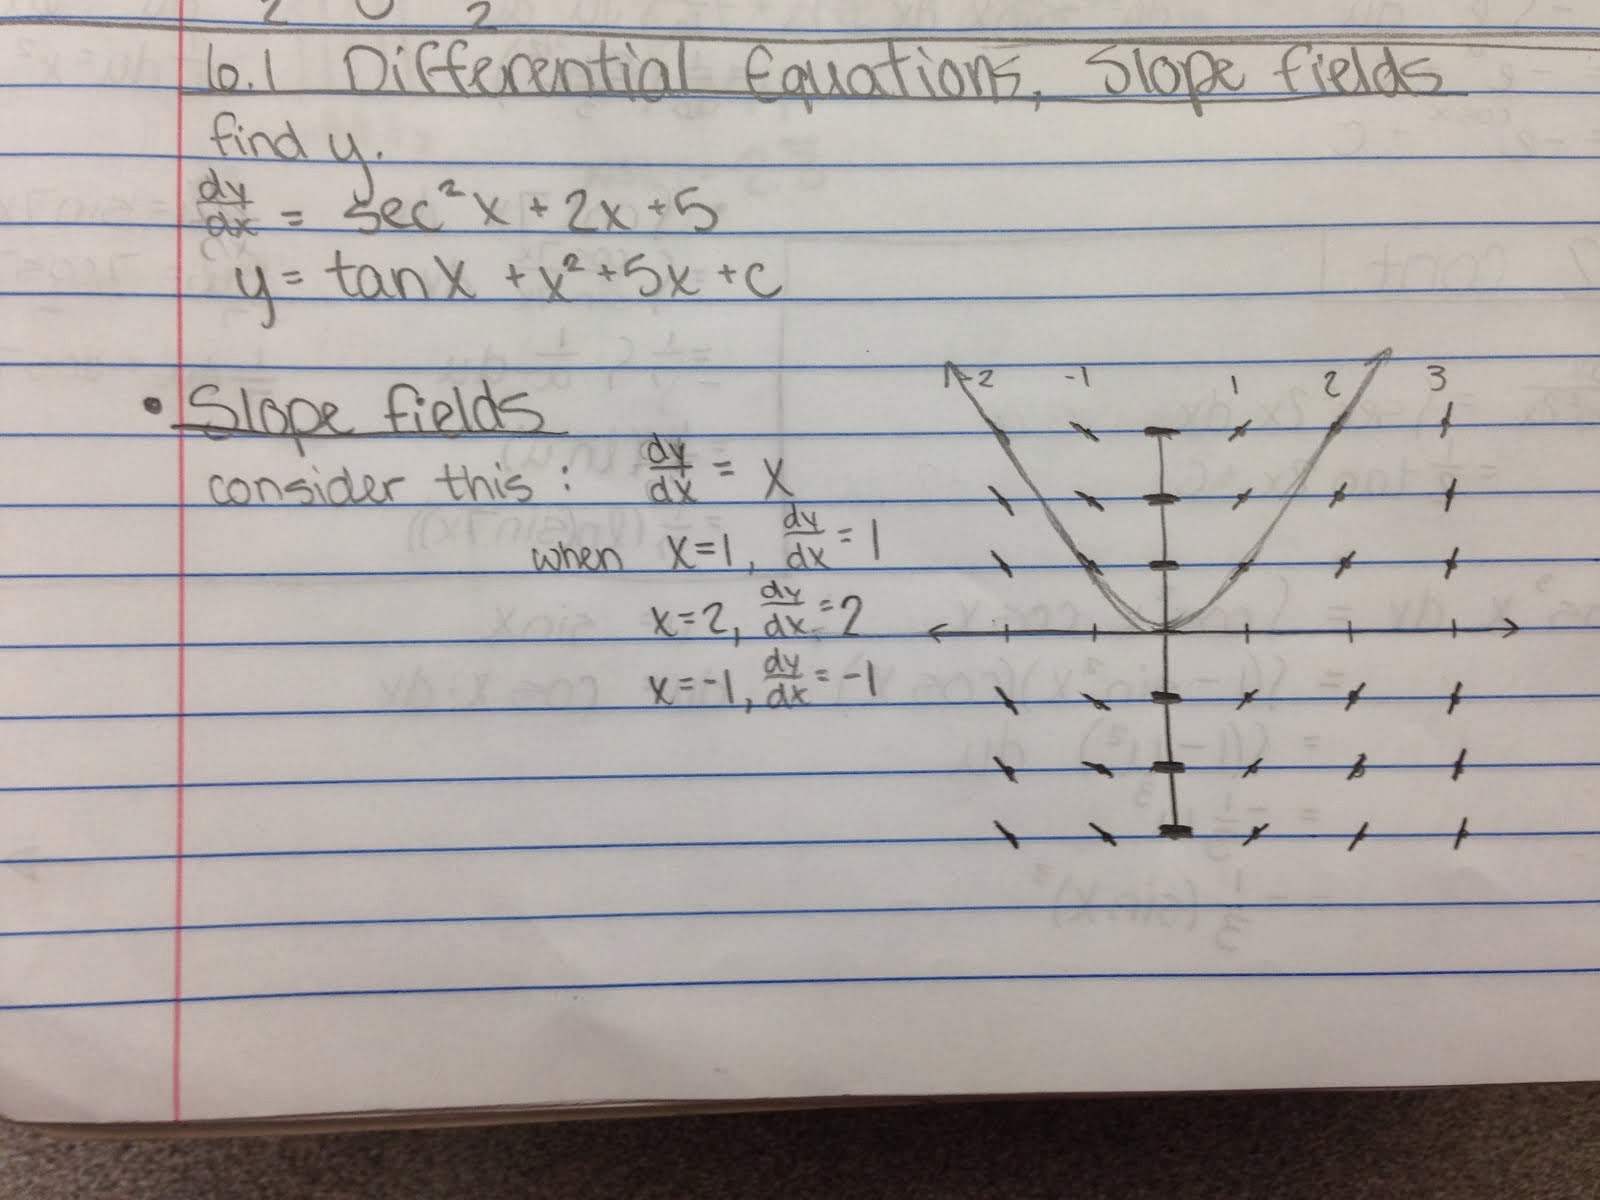 2 2
6.1 Differential Equations, Slope fields
find y.
dy/dx = sec²x + 2x + 5
y = tanx + x² + 5x + c
• Slope fields
consider this: dy/dx = x
when x=1, dy/dx = 1
x=2, dy/dx = 2
x=-1, dy/dx = -1
-2 -1 1 2 3